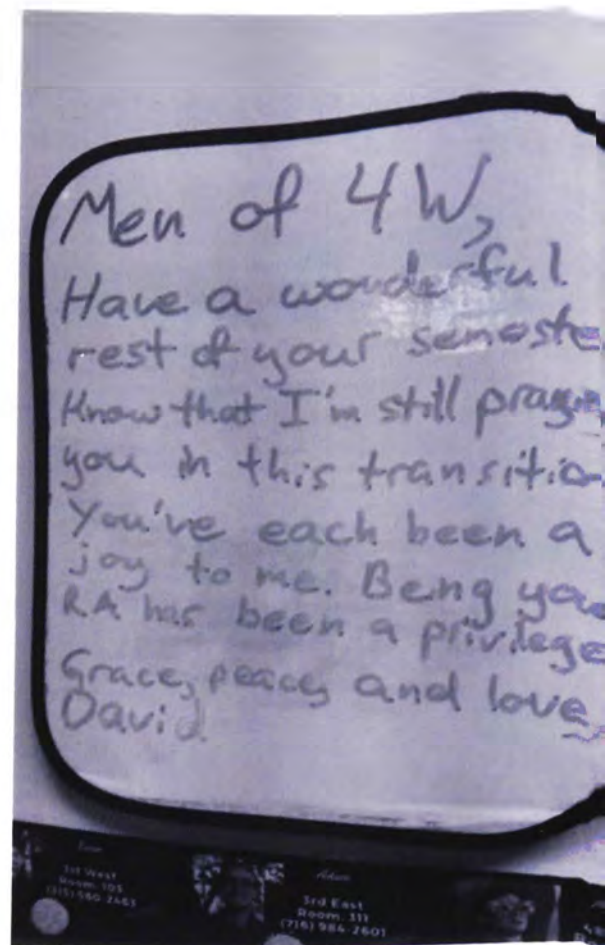 Men of 4W,
Have a wonderful
rest of your semeste
Know that I'm still prayin
you in this transitio
You've each been a
joy to me. Being you
RA has been a privilege
Grace, peace, and love
David
1st West
Room 105
3rd East
Room 311
(716) 984-2601